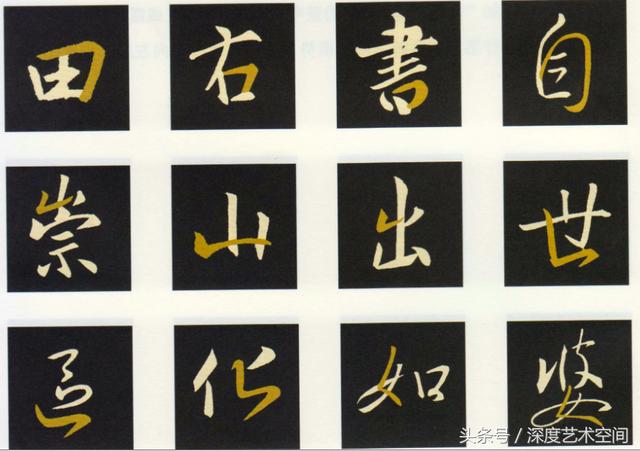 田 右 書 自
崇 山 出 世
化 如 婆
头条号 / 深度艺术空间